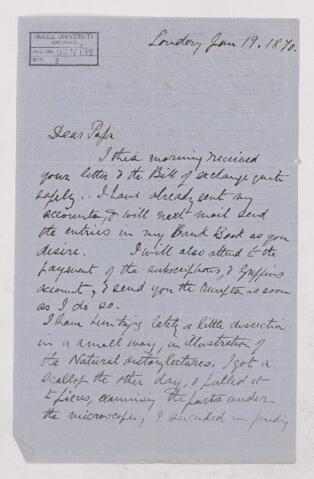 McGILL UNIVERSITY
ARCHIVES
ACC. NO.
REF.
London Jan 19. 1870.
Dear Papa
I this morning received
your letter & the Bill of exchange quite
safely. I have already sent my
accounts, & will next mail send
the entries in my Bank Book as you
desire. I will also attend to the
payment of the subscriptions, & Griffins
account, & send you the receipts as soon
as I do so.
I have been trying lately a little dissection
in a small way, in illustration of
the Natural history lectures. I got a
scallop the other day, & pulled it
to pieces, examining the parts under
the microscope, I succeeded in finding